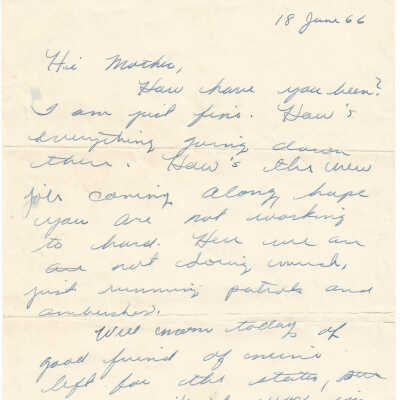 18 June 66
Hi Mother,
How have you been?
I am just fine. How's
everything going down
there. How's the new
job coming along, hope
you are not working
to hard. Here we are
not doing much,
just running patrols and
ambushes.
Well mom today a
good friend of mine
left for the states, our